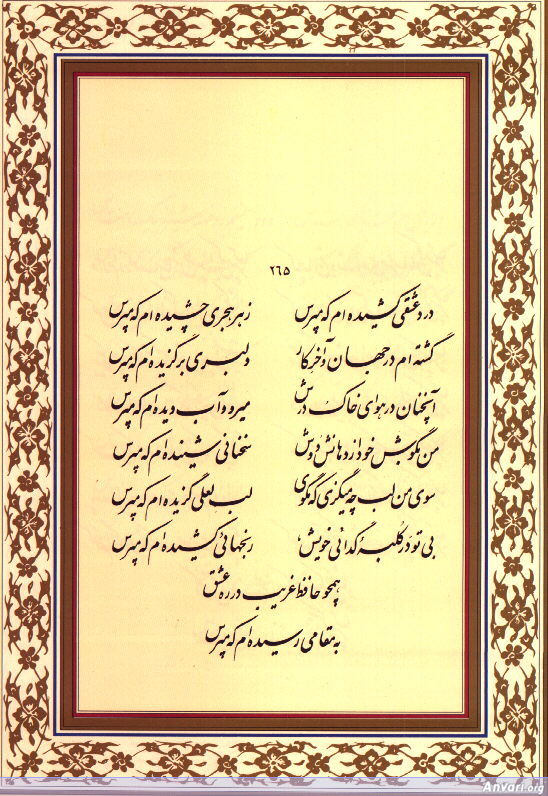 ۲۶۵
درد عشقی کشیده ام که مپرس زهر هجری چشیده ام که مپرس
گشته ام در جهان و آخر کار دلبری برگزیده ام که مپرس
آنچنان در هوای خاک درش میرود آب دیده ام که مپرس
من بگوش خود از دهانش دوش سخنانی شنیده ام که مپرس
سوی من لب چه میگزی که مگوی لب لعلی گزیده ام که مپرس
بی تو در کلبهٔ گدائی خویش رنجهائی کشیده ام که مپرس
همچو حافظ غریب در ره عشق
به مقامی رسیده ام که مپرس
Anvari.org